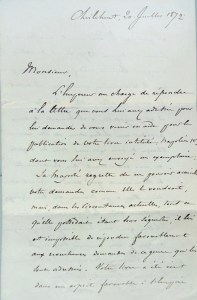 Chislehurst, 20 Juillet 1872
Monsieur,
L'Empereur me charge de répondre
à la lettre que vous lui avez adressée pour
lui demander de vous venir en aide pour la
publication de votre livre intitulé: Napoléon
dont vous lui avez envoyé un exemplaire.
Sa Majesté regrette de ne pouvoir accueillir
votre demande comme Elle le voudrait,
mais dans les circonstances actuelles, tout ce
qu'Elle possédait étant sous séquestre, il lui
est impossible de répondre favorablement
aux nombreuses demandes de ce genre qui
leur adressées. Votre livre a été écrit
dans un esprit favorable à l'Empire